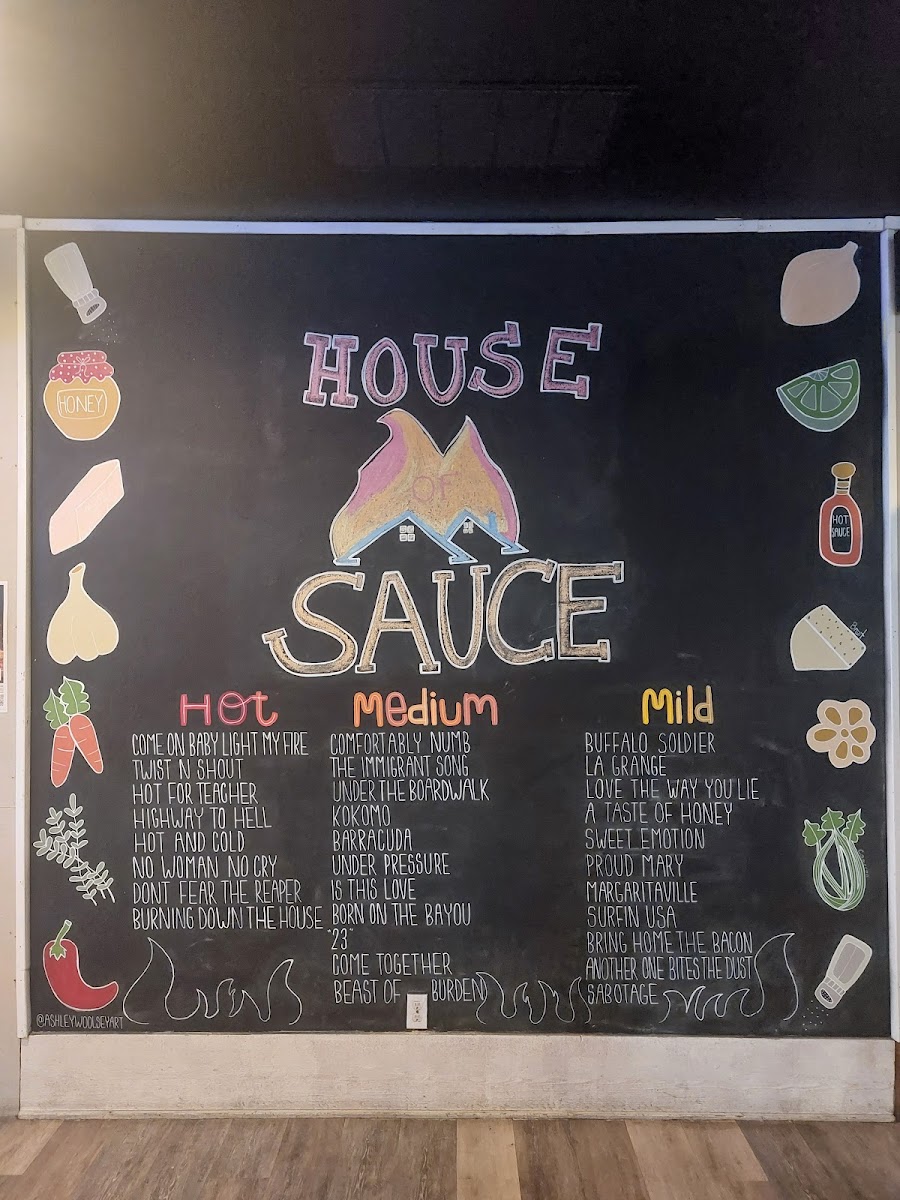 HOUSE
OF
SAUCE
HONEY
HOT
SAUCE
Hot
COME ON BABY LIGHT MY FIRE
TWIST N SHOUT
HOT FOR TEACHER
HIGHWAY TO HELL
HOT AND COLD
NO WOMAN NO CRY
DONT FEAR THE REAPER
BURNING DOWN THE HOUSE
Medium
COMFORTABLY NUMB
THE IMMIGRANT SONG
UNDER THE BOARDWALK
KOKOMO
BARRACUDA
UNDER PRESSURE
IS THIS LOVE
BORN ON THE BAYOU
"23"
COME TOGETHER
BEAST OF BURDEN
Mild
BUFFALO SOLDIER
LA GRANGE
LOVE THE WAY YOU LIE
A TASTE OF HONEY
SWEET EMOTION
PROUD MARY
MARGARITAVILLE
SURFIN USA
BRING HOME THE BACON
ANOTHER ONE BITES THE DUST
SABOTAGE
@ASHLEYWOOLSEYART